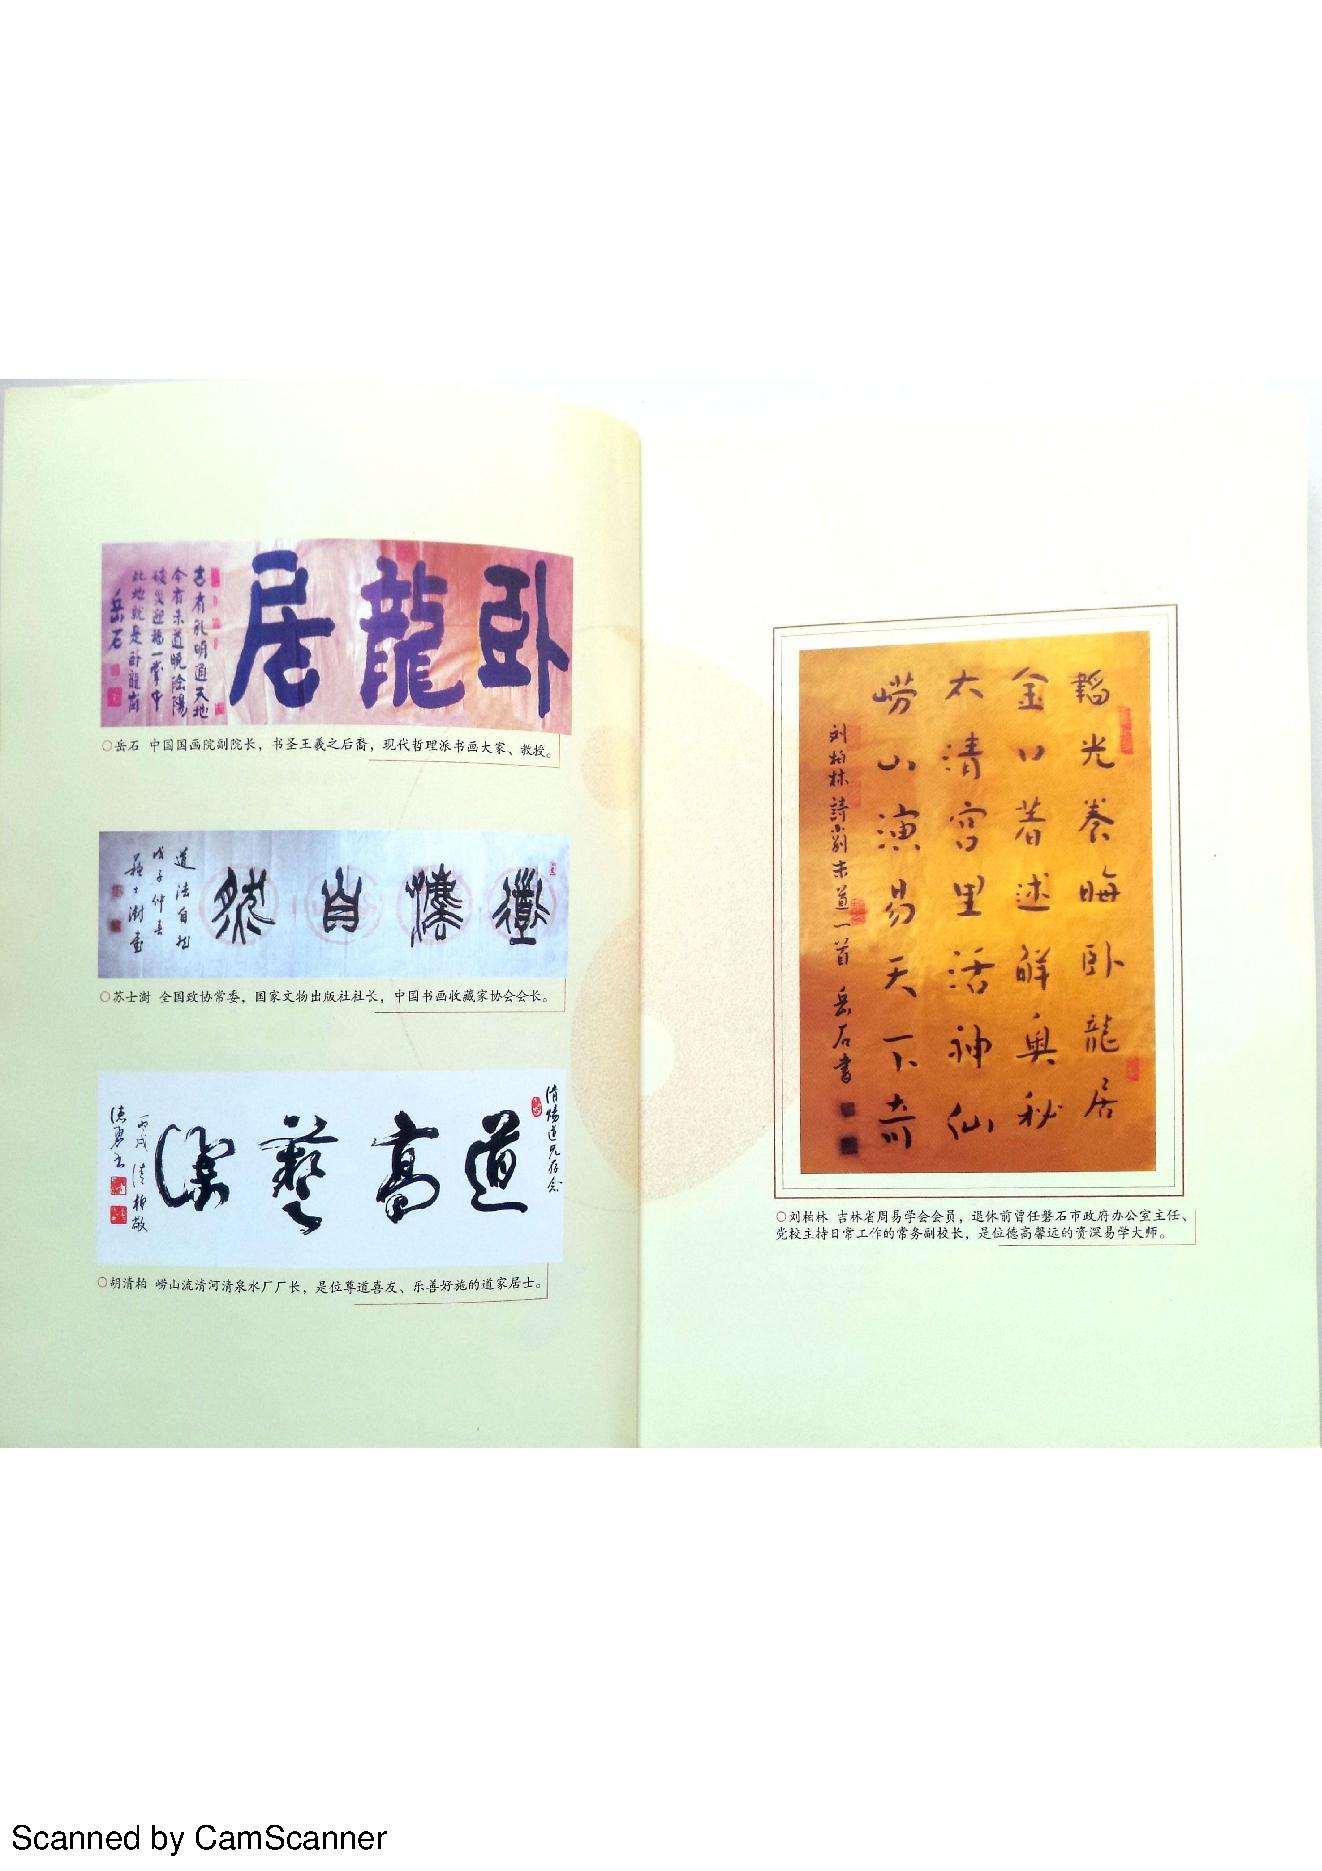 卧龍居
古有孔明通天地
今有朱道晓陰陽
破災迎福一掌中
此地就是卧龍崗
岳石
○岳石 中国国画院副院长，书圣王羲之后裔，现代哲理派书画大家、教授。
道法自然
道法自然
戊子仲春
苏士澍
○苏士澍 全国政协常委，国家文物出版社社长，中国书画收藏家协会会长。
道兄存念
道高藝深
丙戌 清柏敬
○胡清柏 崂山流清河清泉水厂厂长，是位尊道喜友、乐善好施的道家居士。
韜光养晦卧龍居
金口著述解奥秘
太清宫里活神仙
崂山演易天下奇
刘柏林詩
朱道一首 岳石書
○刘柏林 吉林省周易学会会员，退休前曾任磐石市政府办公室主任、
党校主持日常工作的常务副校长，是位德高馨远的资深易学大师。
Scanned by CamScanner